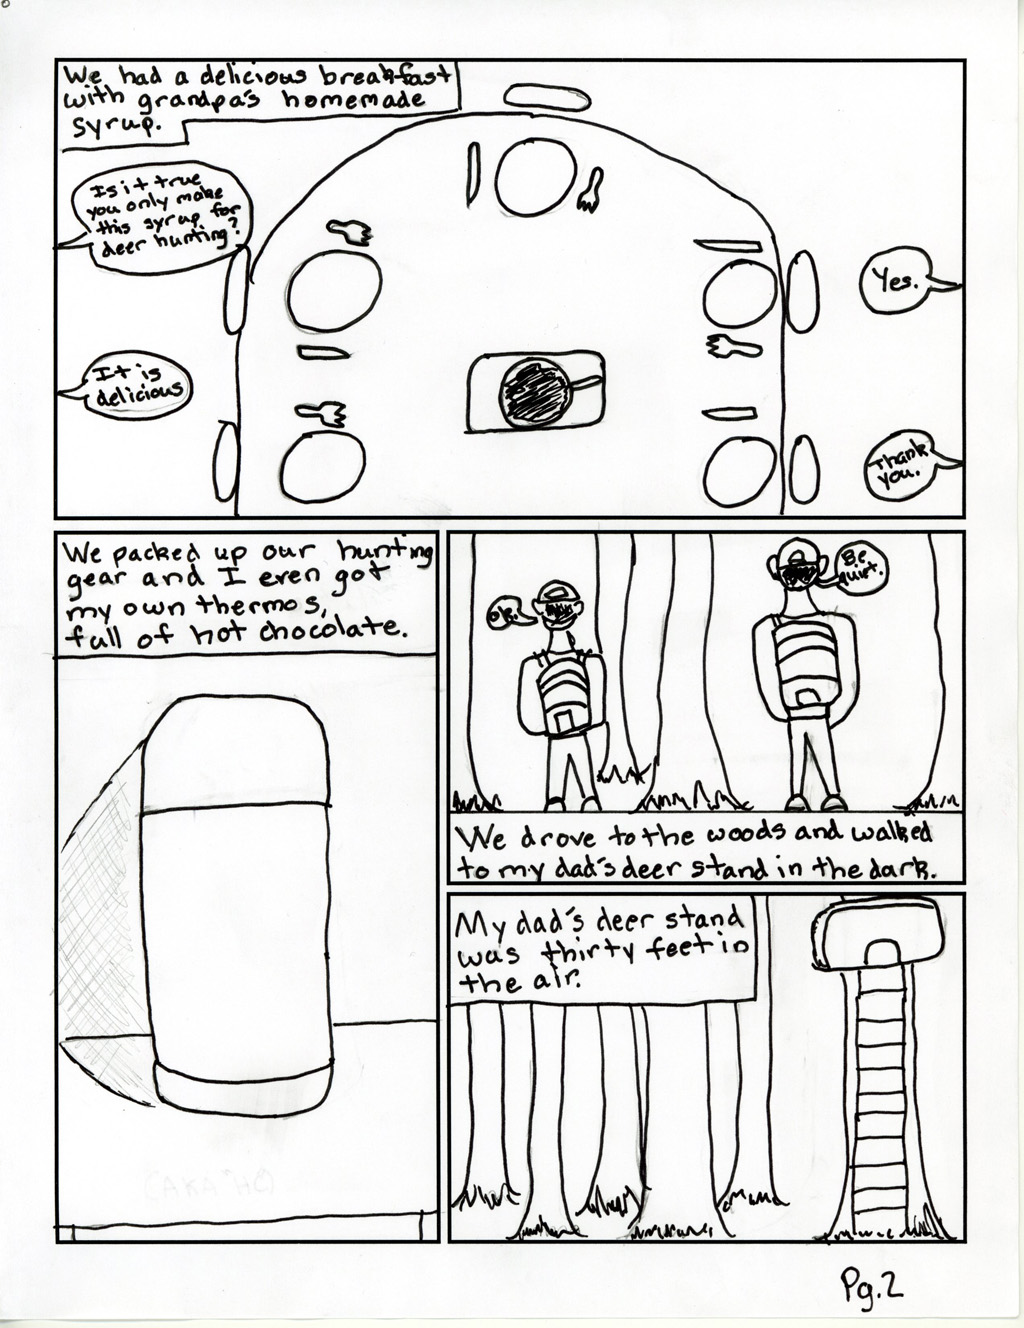 We had a delicious breakfast
with grandpa's homemade
syrup.
Is it true
you only make
this syrup for
deer hunting?
Yes.
It is
delicious
Thank
you.
We packed up our hunting
gear and I even got
my own thermos,
full of hot chocolate.
ok.
Be
quirt.
We drove to the woods and walked
to my dad's deer stand in the dark.
My dad's deer stand
was thirty feet in
the air.
Pg.2